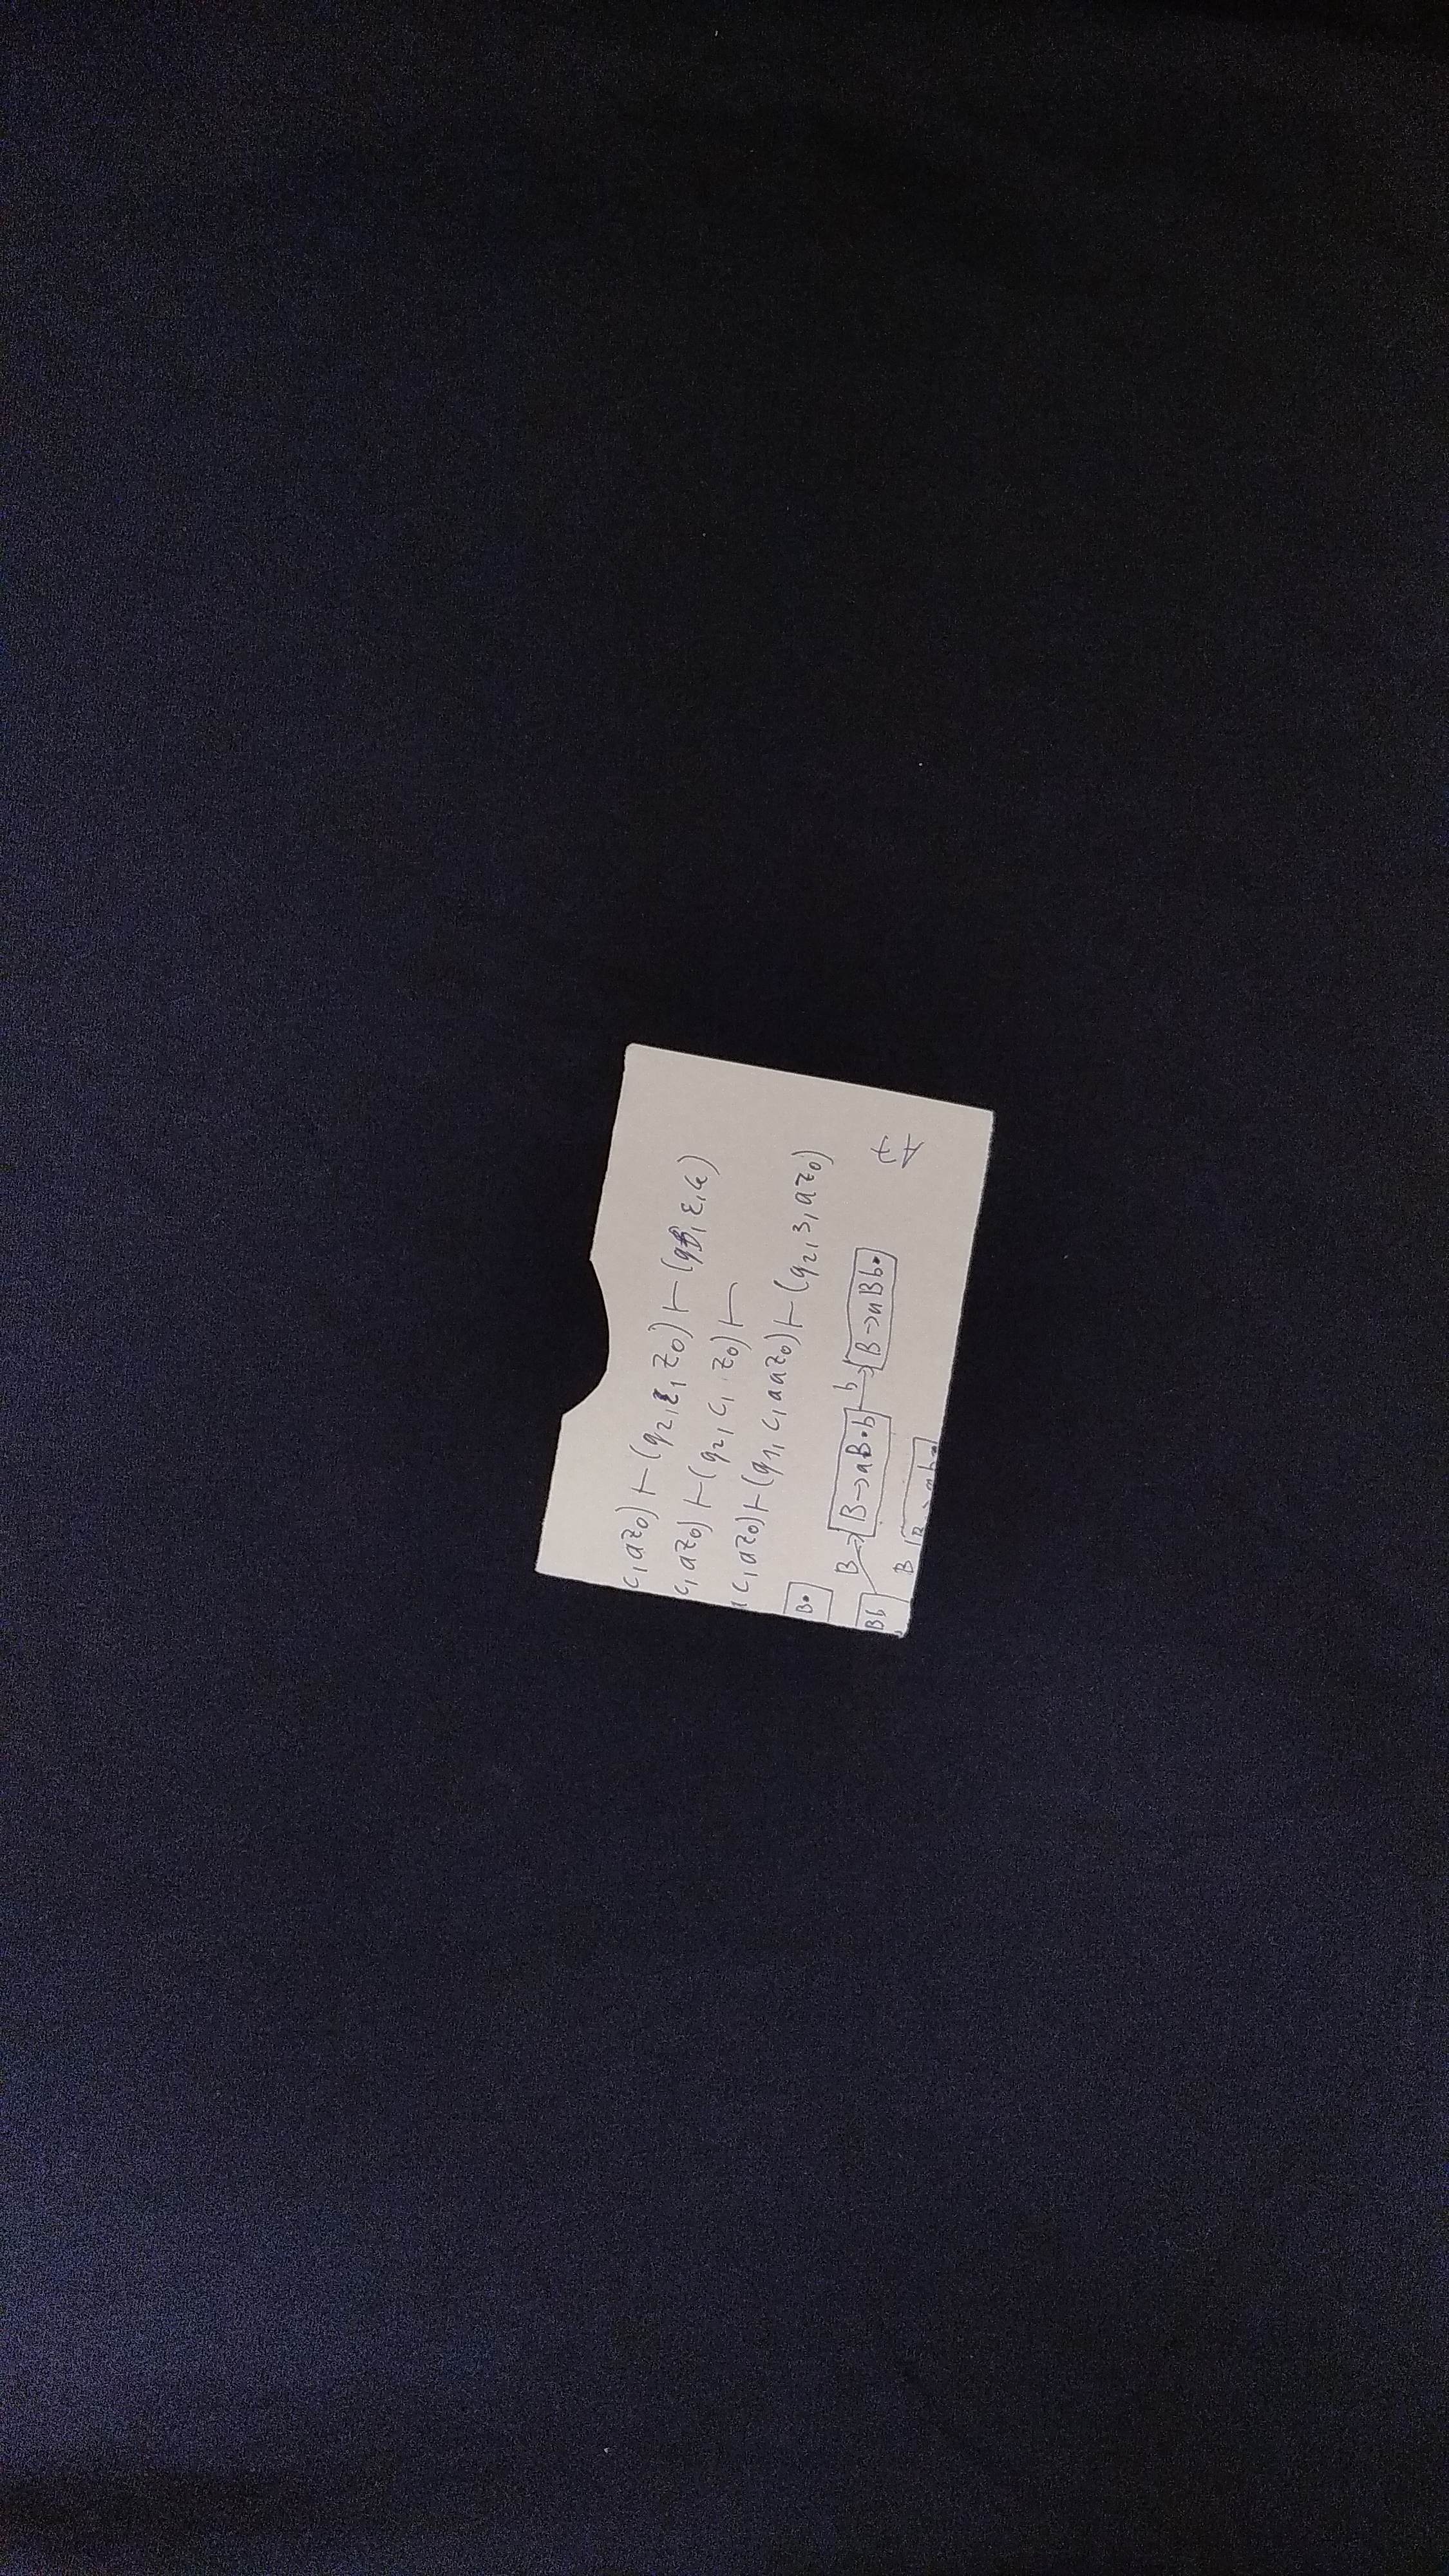 c,az₀) ⊢ (q₂,ε,z₀) ⊢ (qf,ε,ε)
c,az₀) ⊢ (q₂,c,z₀) ⊢
c,az₀) ⊢ (q₁,c,aaz₀) ⊢ (q₂,ε,az₀)
B•
B b
Bb B→aB•b B→aBb• A7
B B→ab•